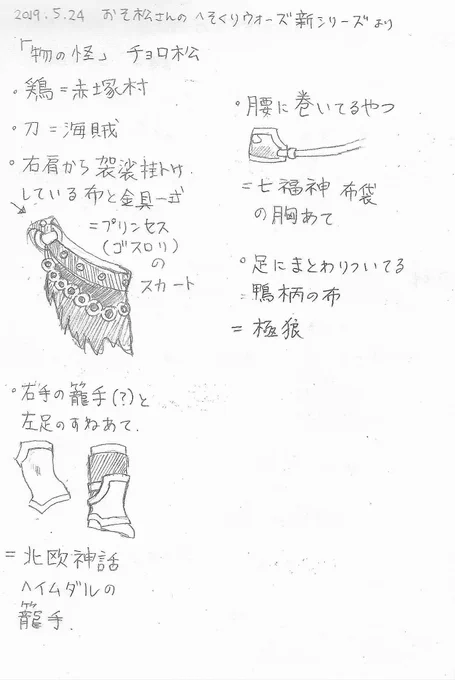 2019.5.24 おそ松さんの へそくりウォーズ新シリーズより
「物の怪」 チョロ松
・鶏=赤塚村
・刀=海賊
・右肩から袈裟掛け
している布と金具一式
=プリンセス
(ゴスロリ)
の
スカート
・右手の籠手(?)と
左足のすねあて.
=北欧神話
ヘイムダルの
籠手.
・腰に巻いてるやつ
=七福神 布袋
の胸あて
・足にまとわりついてる
鴨柄の布
=極狼